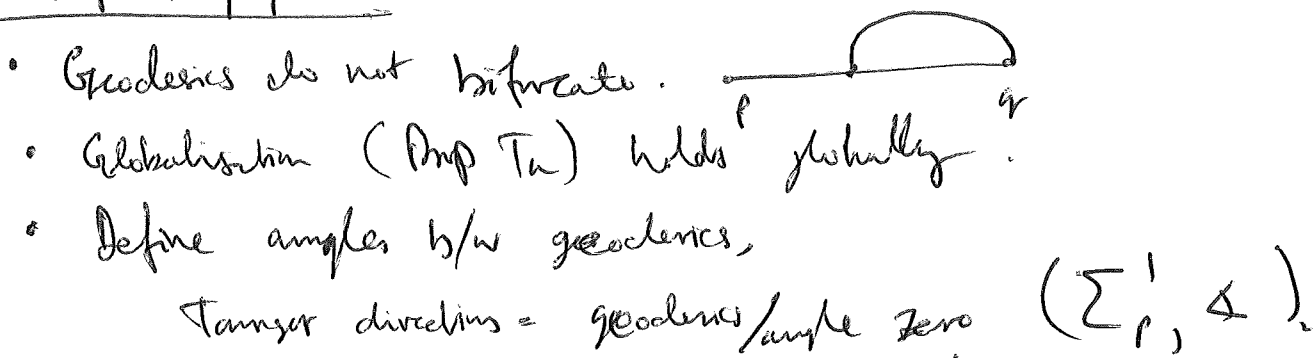 • Geodesics do not bifurcate. p q
• Globalisation (Comp Tn) holds globally.
• Define angles b/w geodesics,
Tangent directions = geodesics/angle zero (Σ'p, ∡).